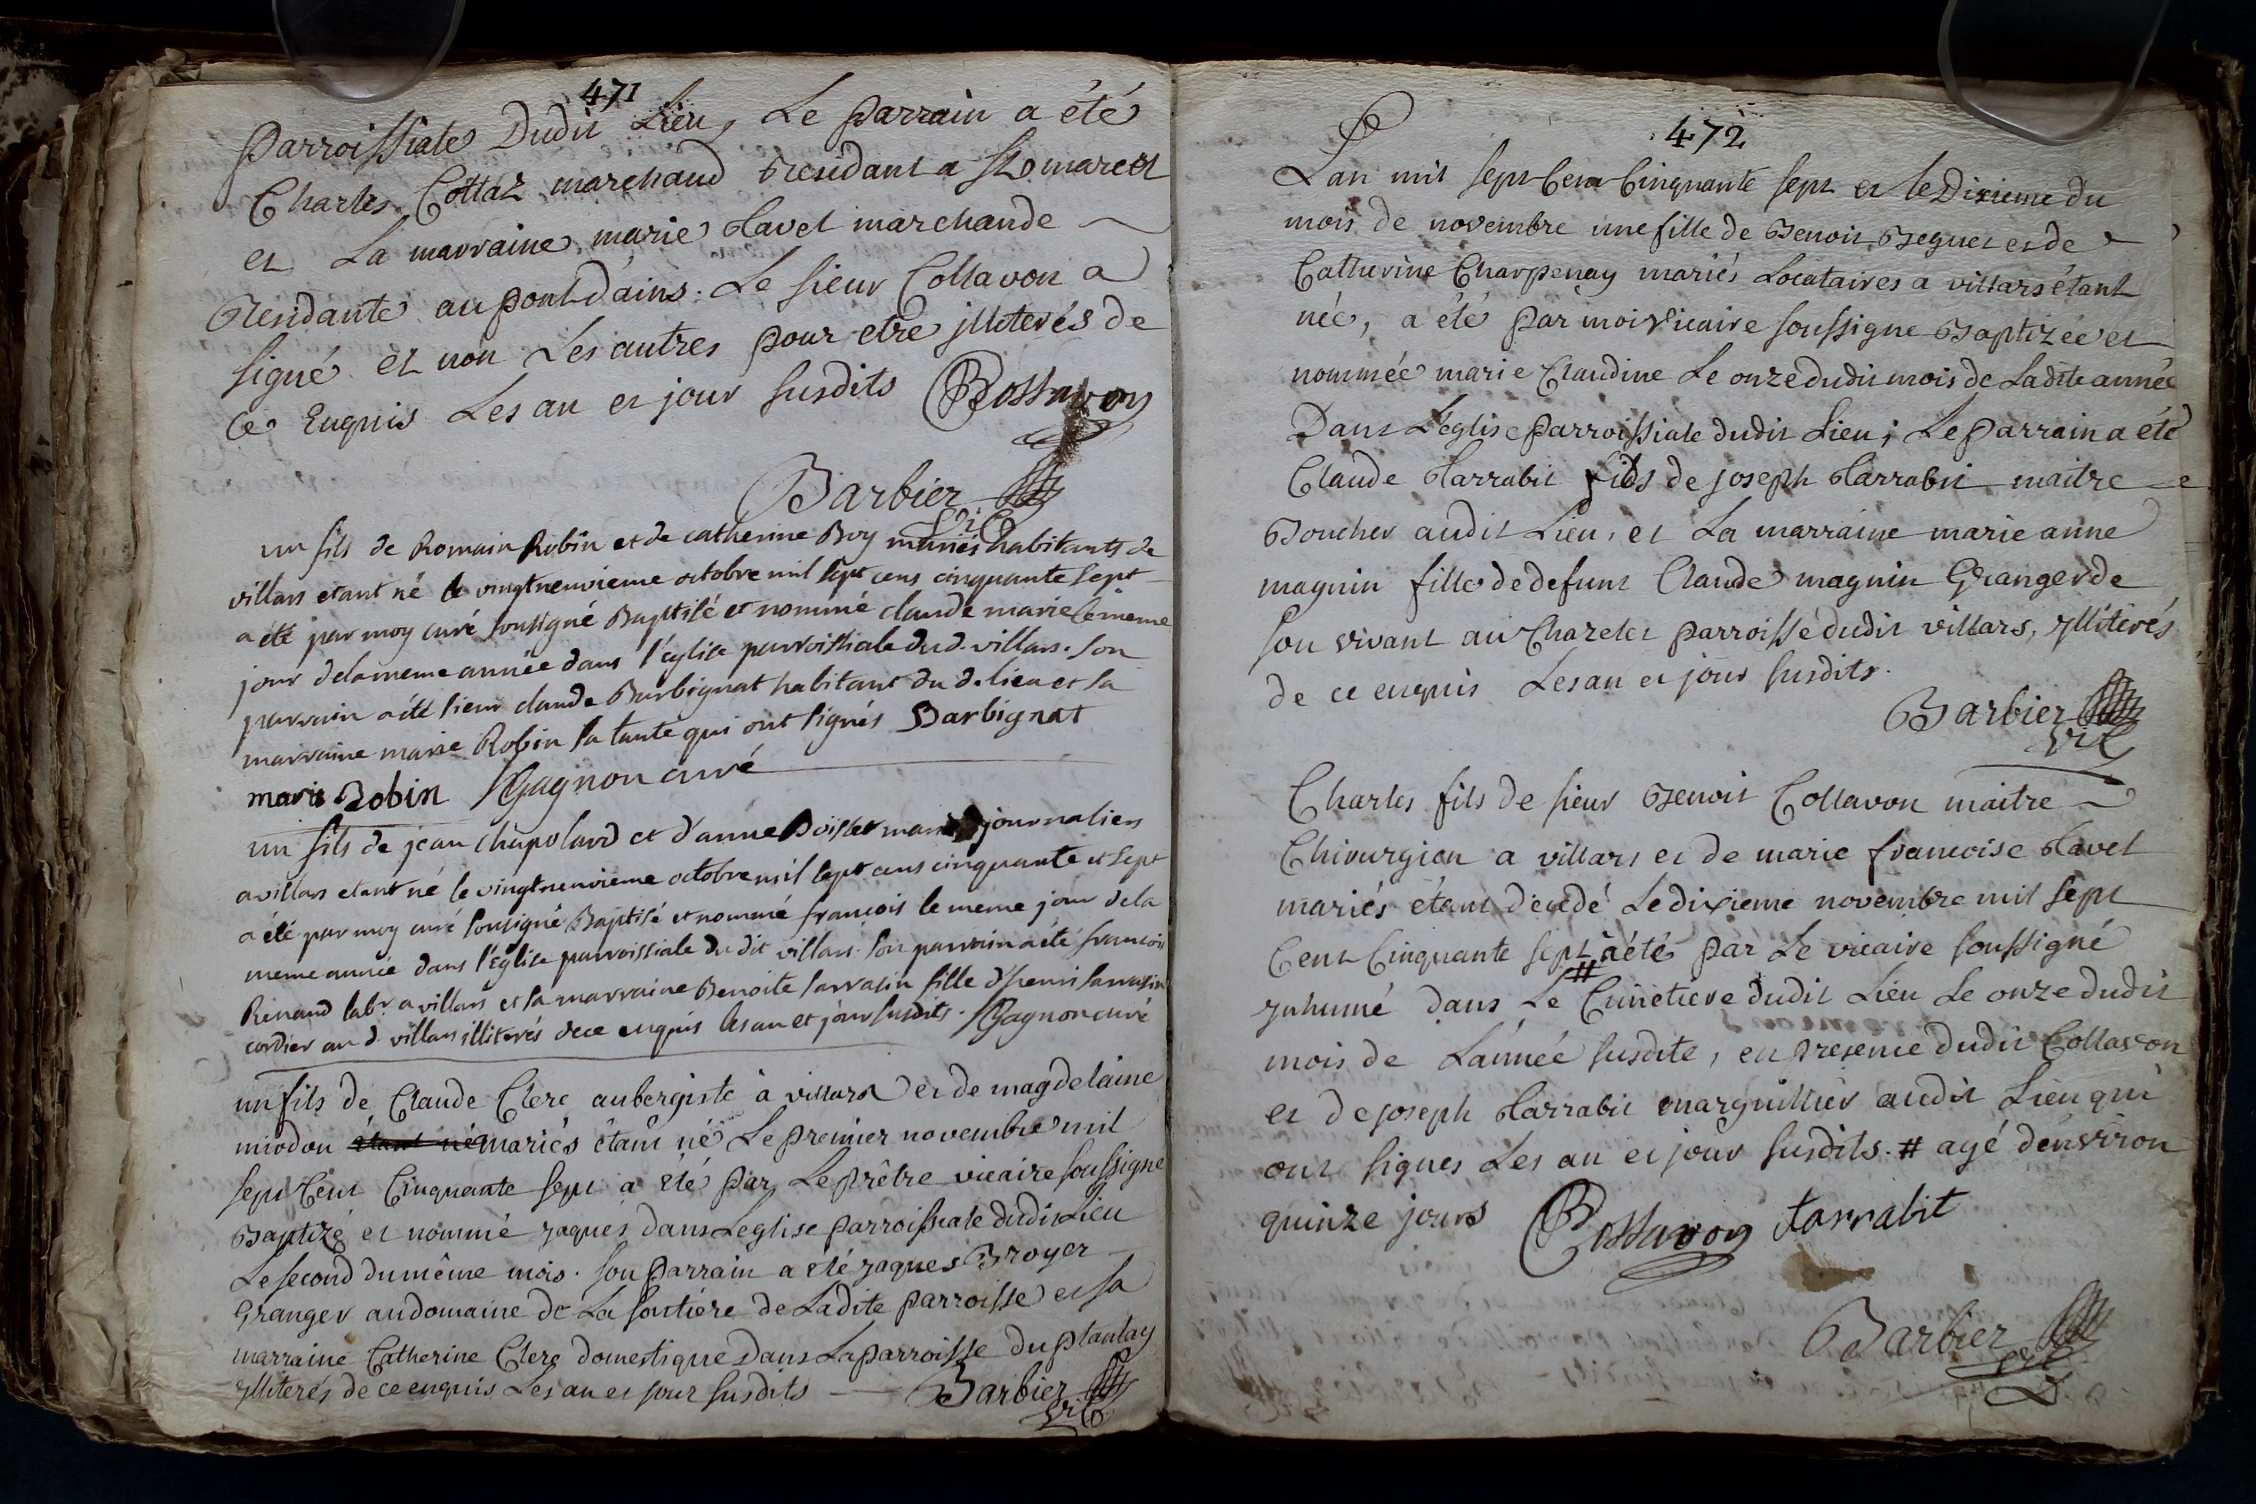 471
Parroissiale Dudit Lieu, Le Parrain a été
Charles Collaz marchand residant a St marcel
et La marraine marie Tavel marchande
Residante au pont d'ains. Le sieur Collavon a
signé et non Les autres pour etre jlliterés de
Ce Enquis Les an et jour susdits BCollavon
Barbier
Vic
un fils de Romain Robin et de catherine Boy mariés habitants de
villars etant né le vingtneuvieme octobre mil sept cens cinquante sept
a été par moy curé sousigné Baptisé et nommé claude marie le meme
jour de la meme année dans l'église parroissiale dud. villars. son
parrain a été sieur claude Barbignat habitant du d. lieu et la
marraine marie Robin sa tante qui ont signés Barbignat
marie Robin Gagnon curé
un fils de jean chapolard et d'anne mariés journaliers
a villars etant né le vingtneuvieme octobre mil sept cens cinquante et sept
a été par moy curé sousigné Baptisé et nommé francois le meme jour de la
meme année dans l'église parroissiale du dit villars. son parrain a été francois
Renaud labr. a villars et sa marraine Benoite sarrasin fille d'henri sarrasin
cordier au d. villars illiterés de ce enquis les an et jour susdits. Gagnon curé
un fils de Claude Clerc aubergiste à villars et de magdelaine
miodon étant né mariés étant né Le premier novembre mil
sept Cent Cinquante sept a été par Le prêtre vicaire soussigné
Baptizé et nommé jaques dans Leglise parroissiale dudit Lieu
Le second du même mois. son Parrain a été jaques Broyer
Granger au domaine de La de Ladite parroisse et sa
marraine Catherine Clerc domestique dans La parroisse du plantay
jlliterés de ce enquis Les an et jour susdits Barbier
Vic
472
L'an mil sept Cent Cinquante sept et le Dixieme du
mois de novembre une fille de Benoit Beguet et de
Catherine Charpenay mariés Locataires a villars étant
née, a été par moi vicaire soussigné Baptizée et
nommée marie Claudine Le onze dudit mois de Ladite année
Dans L'église parroissiale dudit Lieu; Le Parrain a été
Claude Tarrabit fids de joseph Tarrabit maitre
Boucher audit Lieu, et La marraine marie anne
magnin fille de defunt Claude magnin Granger de
son vivant au Chazelet parroisse dudit villars, jlliterés
de ce enquis Les an et jour susdits.
Barbier
Vic
Charles fils de sieur Benoit Collavon maitre
Chirurgien a villars et de marie francoise Tavel
mariés étant décedé Le dixieme novembre mil sept
Cent Cinquante sept # a été par Le vicaire soussigné
jnhumé dans Le Cimetiere dudit Lieu Le onze dudit
mois de L'année susdite, en presence dudit Collavon
et de joseph Tarrabit marguillier audit Lieu qui
ont signes Les an et jour susdits. # agé d'environ
quinze jours BCollavon tarrabit
Barbier
Vic